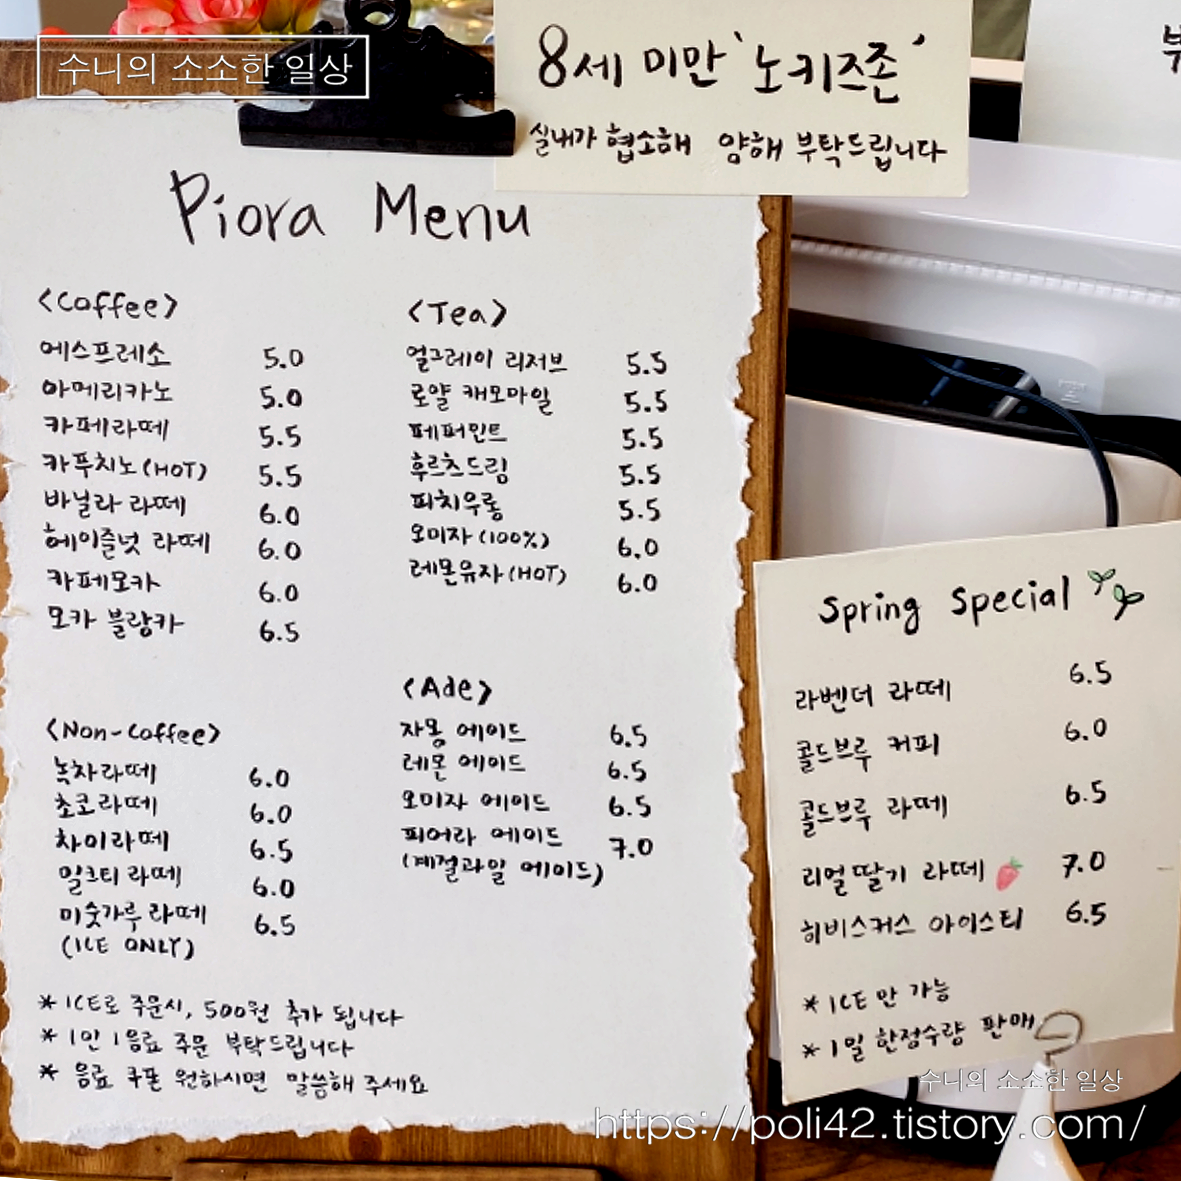 수니의 소소한 일상
8세 미만 '노키즈존'
실내가 협소해 양해 부탁드립니다
부
Piora Menu
<Coffee>
에스프레소 5.0
아메리카노 5.0
카페라떼 5.5
카푸치노(HOT) 5.5
바닐라 라떼 6.0
헤이즐넛 라떼 6.0
카페모카 6.0
모카 블랑카 6.5
<Non-Coffee>
녹차라떼 6.0
초코라떼 6.0
차이라떼 6.5
밀크티 라떼 6.0
미숫가루 라떼 6.5
(ICE ONLY)
<Tea>
얼그레이 리저브 5.5
로얄 캐모마일 5.5
페퍼민트 5.5
후르츠드림 5.5
피치우롱 5.5
오미자(100%) 6.0
레몬유자(HOT) 6.0
<Ade>
자몽 에이드 6.5
레몬 에이드 6.5
오미자 에이드 6.5
피어라 에이드 7.0
(계절과일 에이드)
* ICE로 주문시, 500원 추가 됩니다
* 1인 1음료 주문 부탁드립니다
* 음료 쿠폰 원하시면 말씀해 주세요
Spring Special
라벤더 라떼 6.5
콜드브루 커피 6.0
콜드브루 라떼 6.5
리얼딸기 라떼 7.0
히비스커스 아이스티 6.5
* ICE 만 가능
* 1일 한정수량 판매
수니의 소소한 일상
https://poli42.tistory.com/